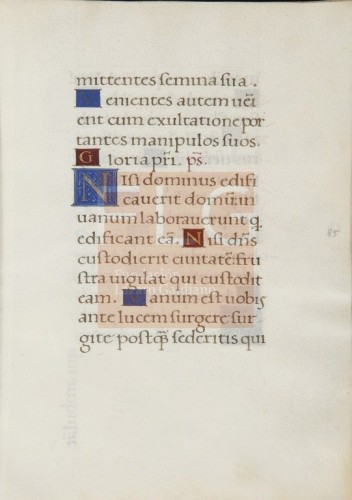 mittentes semina sua.
Venientes autem uẽi
ent cum exultatione por
tantes manipulos suos.
Gloria pr̃i. ps̃.
Nisi dominus edifi
cauerit domũ: in
uanum laborauerunt q̃
edificant eã. Nisi dñs
custodierit ciuitatẽ: fru
stra uigilat qui custodit
eam. Vanum est uobis
ante lucem surgere: sur
gite postq̃ sederitis qui
85